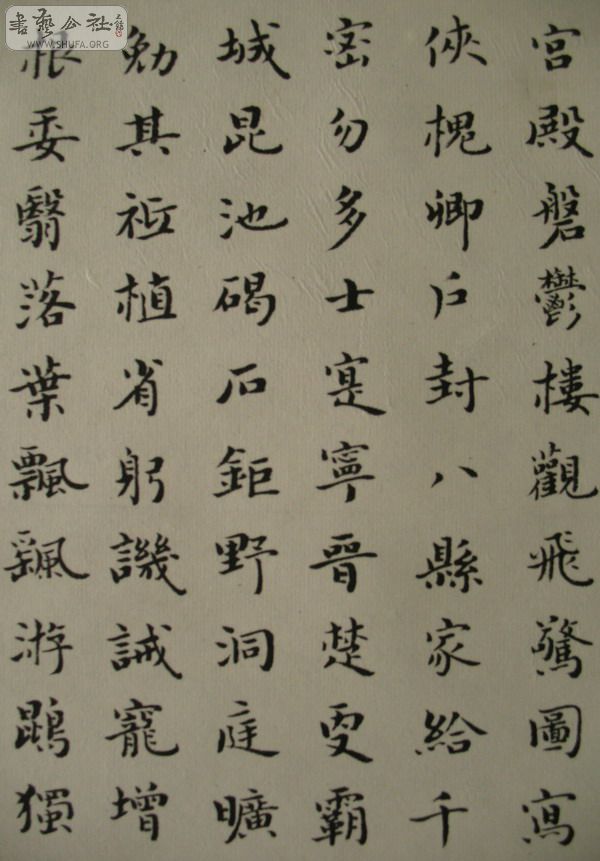 宮殿磐鬱樓觀飛驚圖寫
俠槐卿戶封八縣家給千
密勿多士寔寧晉楚更霸
城昆池碣石鉅野洞庭曠
勉其祗植省躬譏誡寵增
根委翳落葉飄颻游鵾獨
書藝公社
WWW.SHUFA.ORG